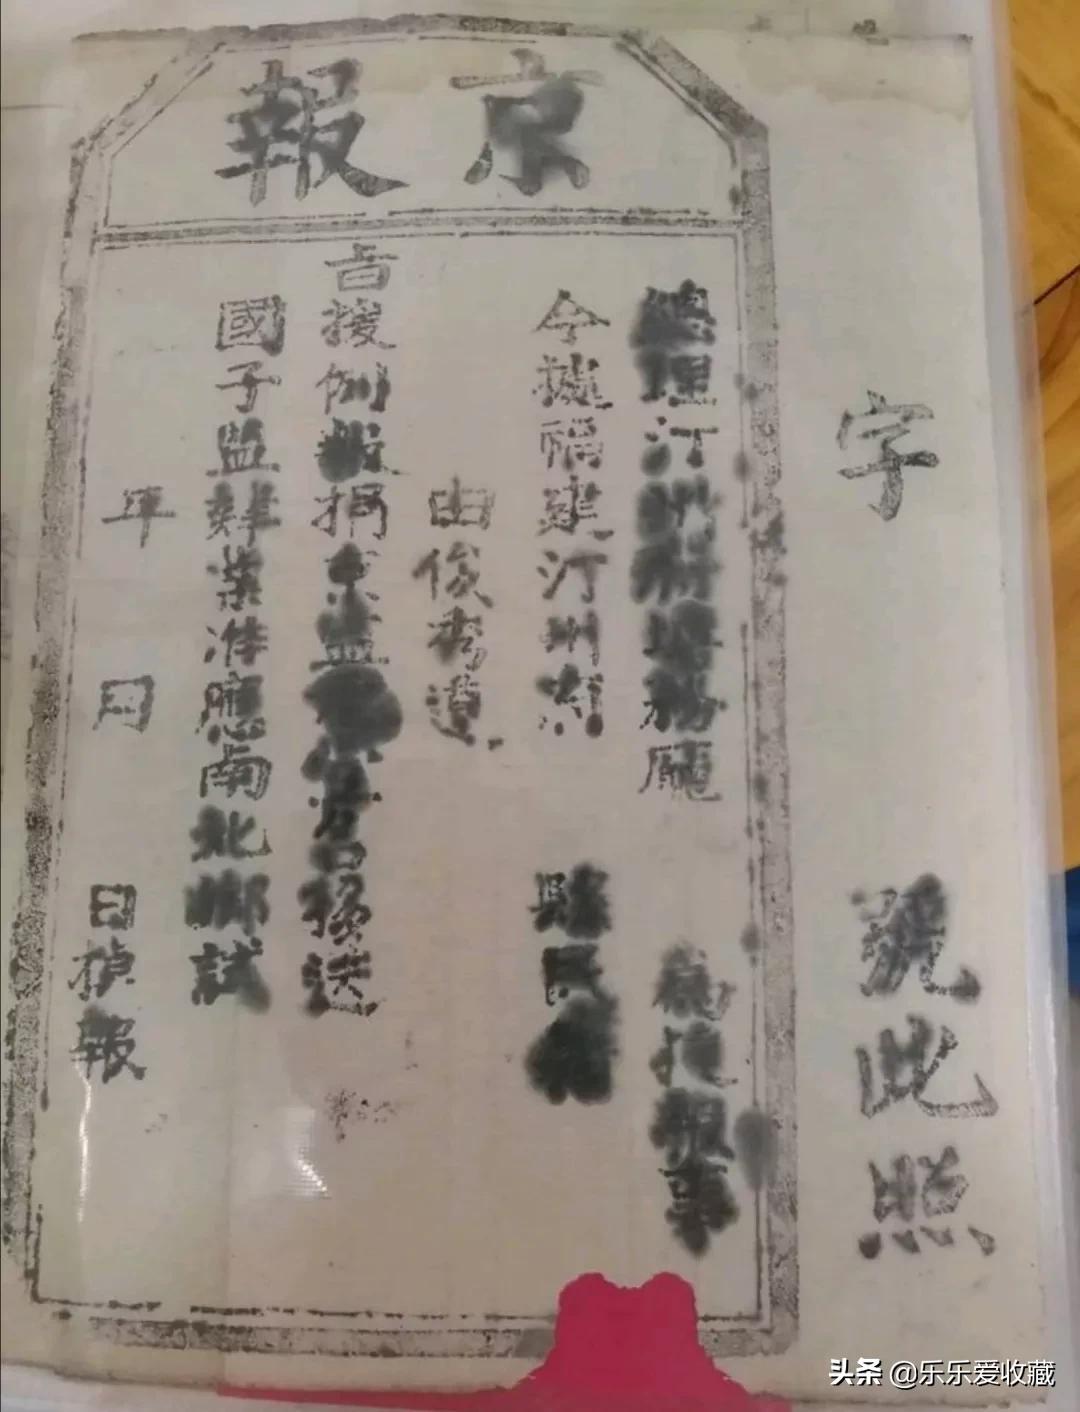 京報
字 號此照
總理汀州府塘務廳 為捷報事
今據福建汀州府 縣民籍
由俊秀遵
旨援例報捐京監 移送
國子監肄業准應南北鄉試
年 月 日 報
头条 @乐乐爱收藏